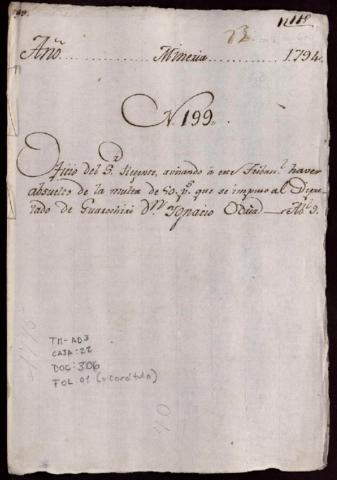 Año. Mineria 1794.
N 199.
Oficio del Sr. Regente, avisando à este Tribunl. haver
absuelto de la multa de 50. ps. que se impuso al Dipu-
tado de Guarochiri Dn. Ygnacio Odria Abl. 9.
TM-AD3
CAJA-22
DOC: 306
FOL 01 (+ carátula)